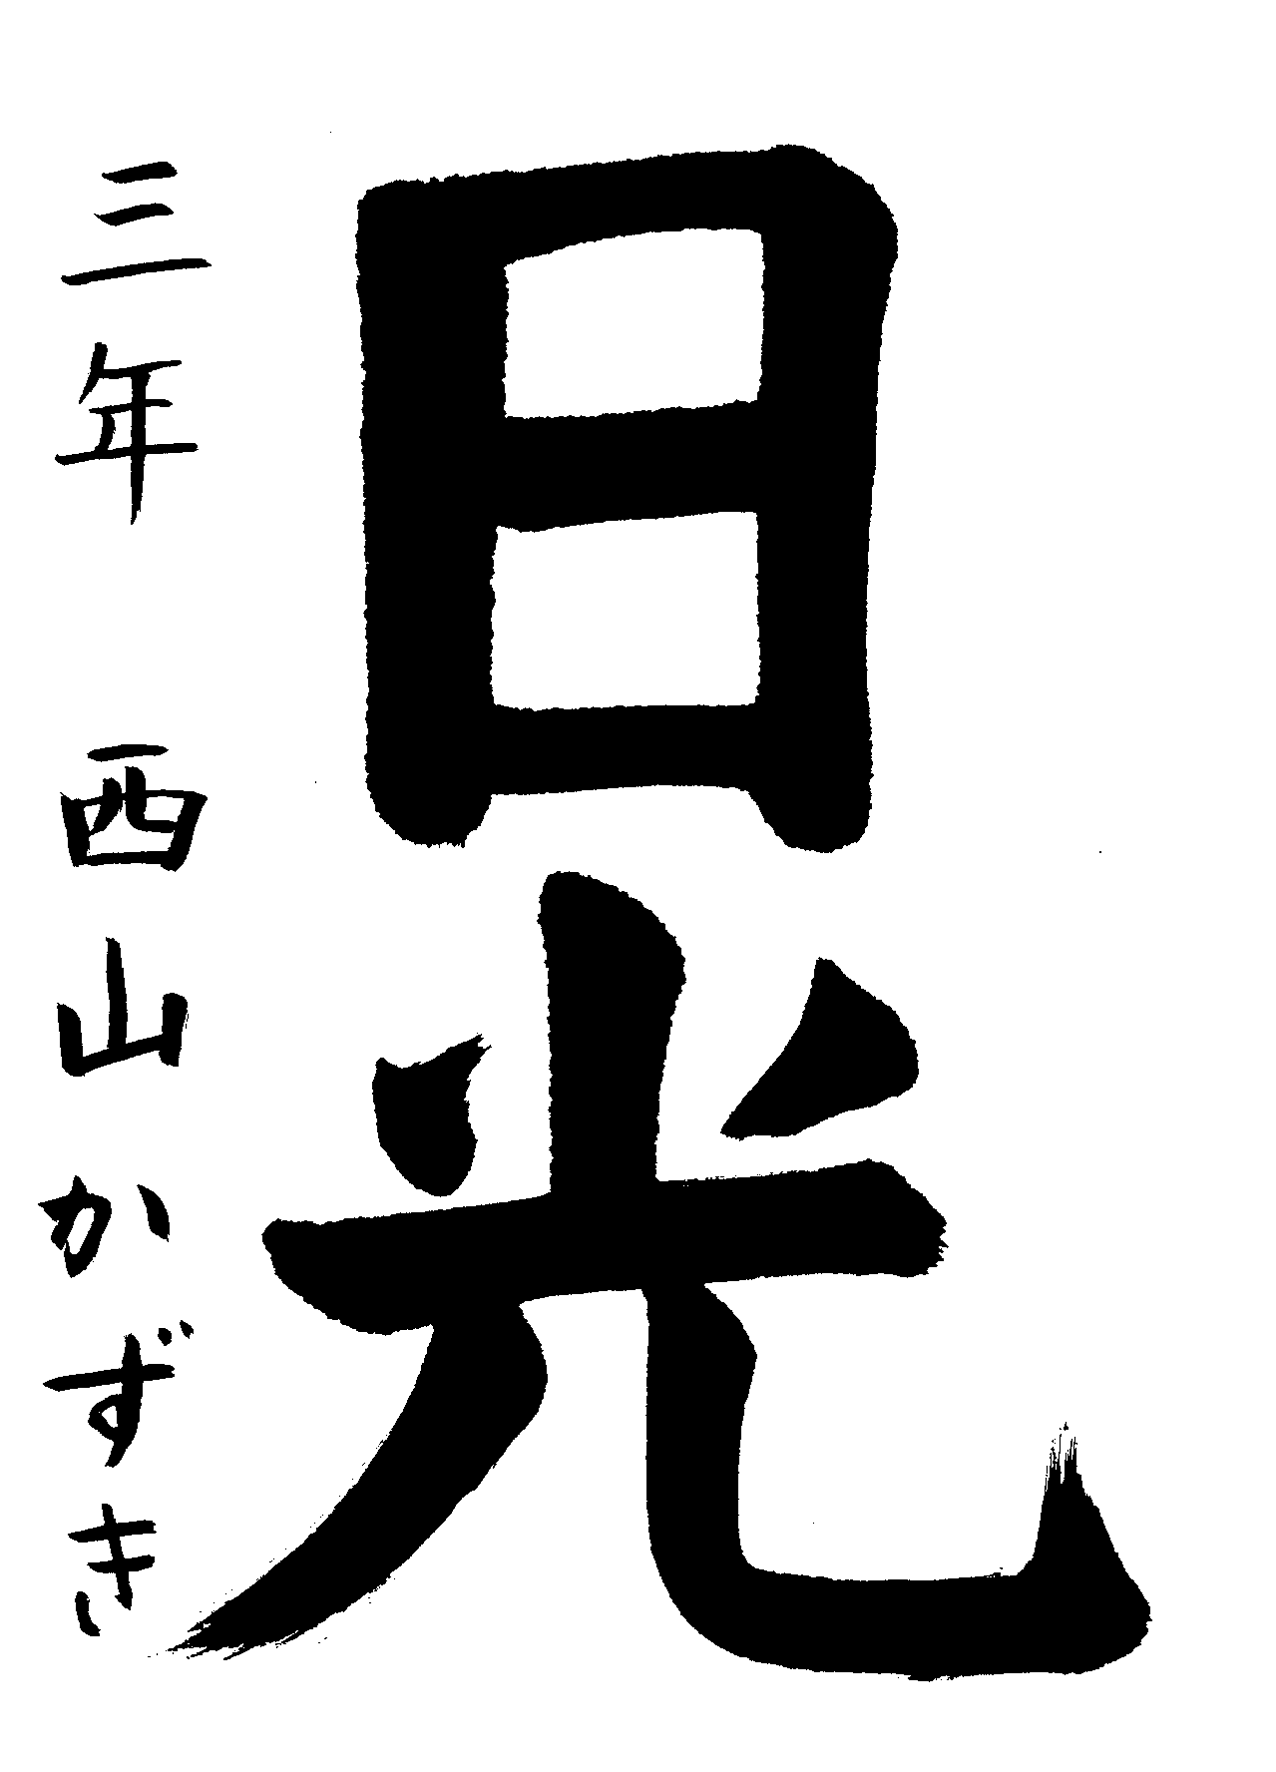 日光
三年 西山かずき